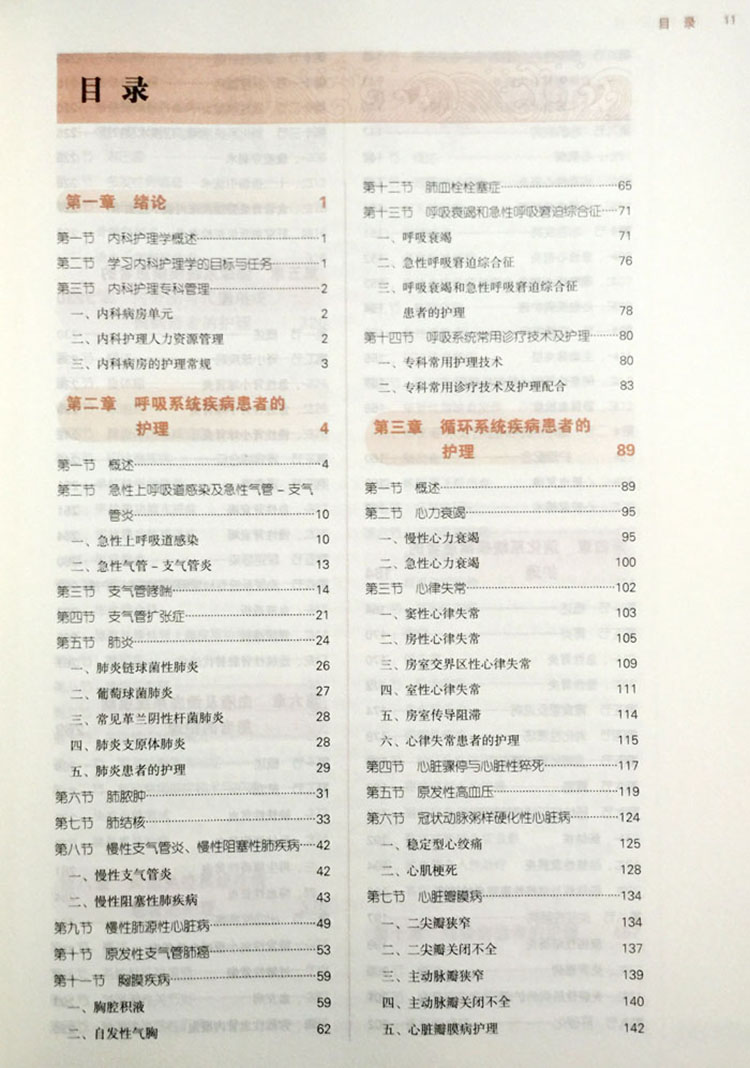 目 录 11
目 录
第一章 绪论 1
第一节 内科护理学概述 1
第二节 学习内科护理学的目标与任务 1
第三节 内科护理专科管理 2
一、内科病房单元 2
二、内科护理人力资源管理 2
三、内科病房的护理常规 3
第二章 呼吸系统疾病患者的
护理 4
第一节 概述 4
第二节 急性上呼吸道感染及急性气管－支气
管炎 10
一、急性上呼吸道感染 10
二、急性气管－支气管炎 13
第三节 支气管哮喘 14
第四节 支气管扩张症 21
第五节 肺炎 24
一、肺炎链球菌性肺炎 26
二、葡萄球菌肺炎 27
三、常见革兰阴性杆菌肺炎 28
四、肺炎支原体肺炎 28
五、肺炎患者的护理 29
第六节 肺脓肿 31
第七节 肺结核 33
第八节 慢性支气管炎、慢性阻塞性肺疾病 42
一、慢性支气管炎 42
二、慢性阻塞性肺疾病 43
第九节 慢性肺源性心脏病 49
第十节 原发性支气管肺癌 53
第十一节 胸膜疾病 59
一、胸腔积液 59
二、自发性气胸 62
第十二节 肺血栓栓塞症 65
第十三节 呼吸衰竭和急性呼吸窘迫综合征 71
一、呼吸衰竭 71
二、急性呼吸窘迫综合征 76
三、呼吸衰竭和急性呼吸窘迫综合征
患者的护理 78
第十四节 呼吸系统常用诊疗技术及护理 80
一、专科常用护理技术 80
二、专科常用诊疗技术及护理配合 83
第三章 循环系统疾病患者的
护理 89
第一节 概述 89
第二节 心力衰竭 95
一、慢性心力衰竭 95
二、急性心力衰竭 100
第三节 心律失常 102
一、窦性心律失常 103
二、房性心律失常 105
三、房室交界区性心律失常 109
四、室性心律失常 111
五、房室传导阻滞 114
六、心律失常患者的护理 115
第四节 心脏骤停与心脏性猝死 117
第五节 原发性高血压 119
第六节 冠状动脉粥样硬化性心脏病 124
一、稳定型心绞痛 125
二、心肌梗死 128
第七节 心脏瓣膜病 134
一、二尖瓣狭窄 134
二、二尖瓣关闭不全 137
三、主动脉瓣狭窄 139
四、主动脉瓣关闭不全 140
五、心脏瓣膜病护理 142